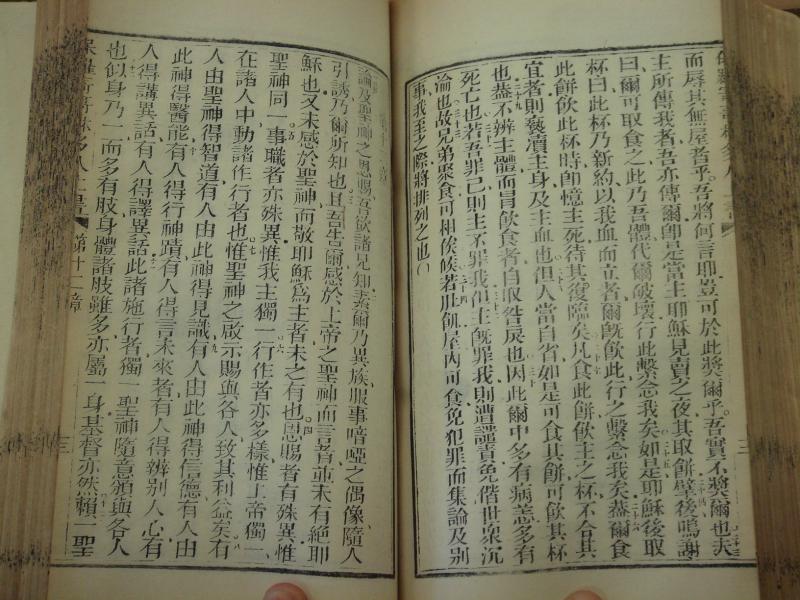 而辱其無屋者乎吾將何言耶豈可於此奬爾乎吾實不奬爾也夫
主所傳我者吾亦傳爾卽是當主耶穌見賣之夜其取餅擘後鳴謝
曰爾可取食之此乃吾體代爾破壞行此繫念我矣如是耶穌後取
杯曰此杯乃新約以我血而立者爾旣飲此行之繫念我矣葢爾食
此餅飲此杯時卽憶主死待其復臨矣凡食此餅飲主之杯不合其
宜者則褻瀆主身及主血也但人當自省如是可食其餅可飲其杯
也葢不辨主體而冒飲食者自取咎戾也因此爾中多有病恙多有
死亡也若吾罪己則主不罪我但主旣罪我則遭譴責免偕世衆沉
淪也故兄弟聚食可相俟候若肚飢屋內可食免犯罪而集論及別
事我至之際將排列之也
論乃聖神之恩賜吾欲諸兄知葢爾乃異族服事喑啞之偶像隨人
引誘乃爾所知也且吾告爾感於上帝之聖神而言者並未有絕耶
穌也又未感於聖神而敬耶穌爲主者未之有也恩賜者有殊異惟
聖神同一事職者亦殊異惟我主獨一行作者亦多樣惟上帝獨一
在諸人中動諸作行者也惟聖神之啟示賜與各人致其利益矣有
人由聖神得智道有人由此神得見識有人由此神得信德有人由
此神得醫能有人得行神蹟有人得言未來者有人得辨別人心有
人得講異話有人得譯異話此諸施行者獨一聖神隨意頒與各人
也似身乃一而多有肢身體諸肢雖多亦屬一身基督亦然賴一聖
第十二章